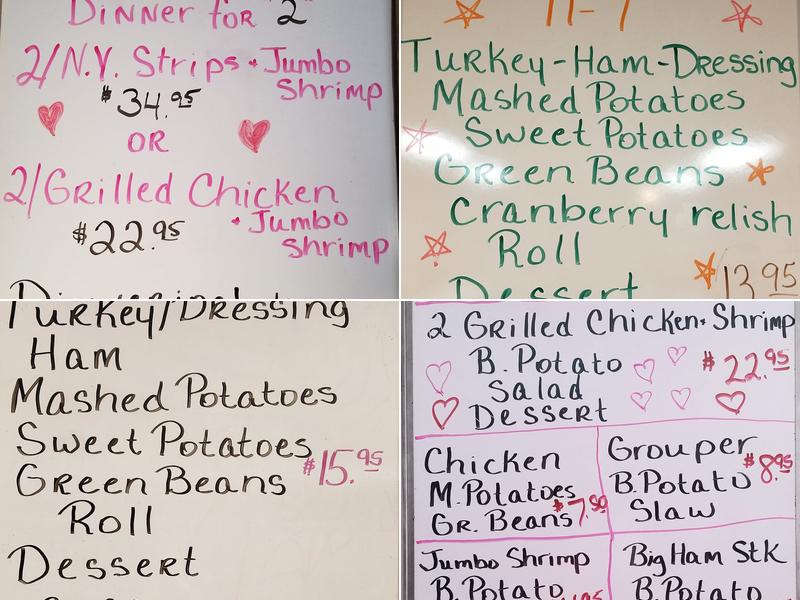 Dinner for "2"
2/N.Y. Strips • Jumbo
Shrimp
$34.95
OR
2/Grilled Chicken
$22.95 • Jumbo
Shrimp
11-7
Turkey-Ham-Dressing
Mashed Potatoes
Sweet Potatoes
Green Beans
Cranberry relish
Roll
Dessert
$13.95
Turkey/Dressing
Ham
Mashed Potatoes
Sweet Potatoes
Green Beans $15.95
Roll
Dessert
2 Grilled Chicken • Shrimp
B. Potato $22.95
Salad
Dessert
Chicken
M. Potatoes
Gr. Beans $7.50
Grouper
B. Potato $8.95
Slaw
Jumbo Shrimp
B. Potato
Big Ham Stk
B. Potato